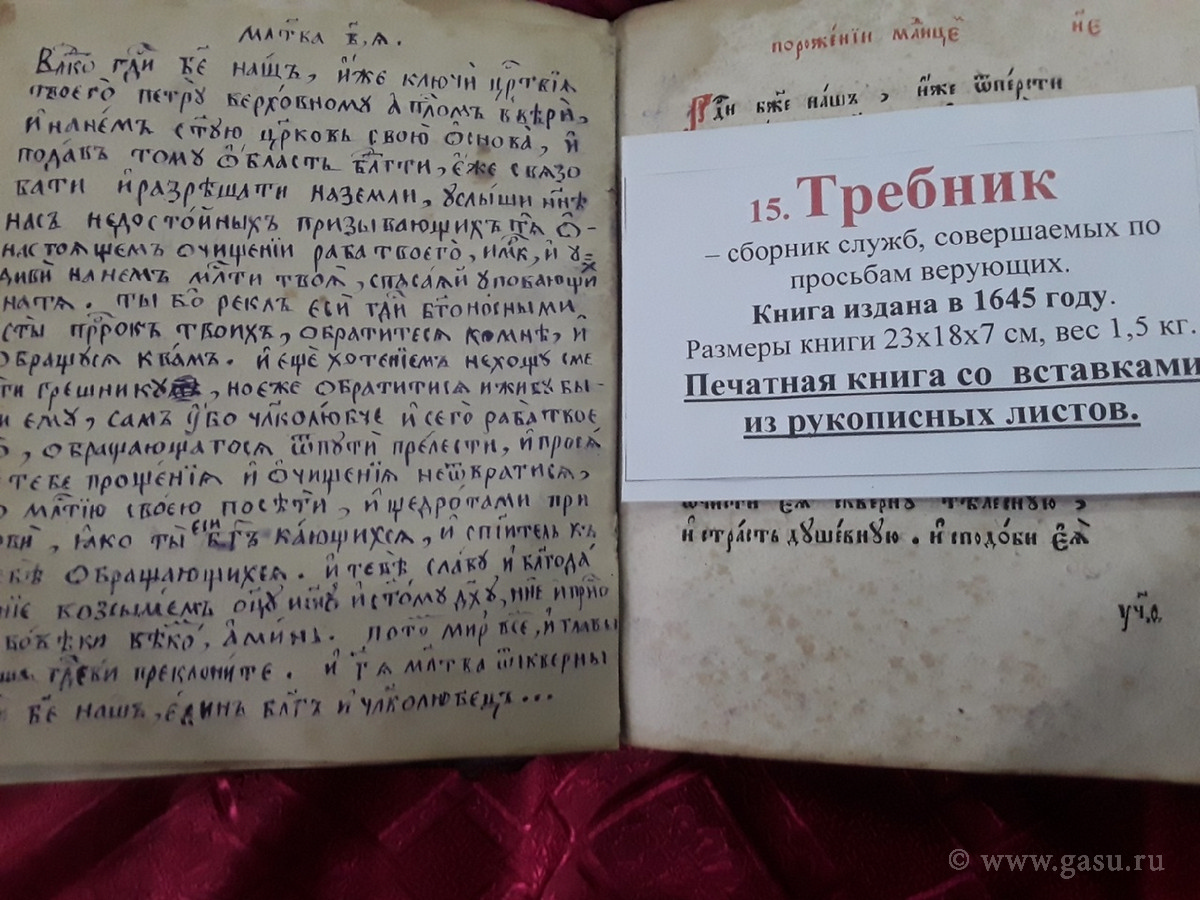 мл҃тка в҃,я.
Влⷣко гдⷭ҇и бж҃е нашъ, и҆́же ключѝ црⷭ҇твїѧ
твоегѡ̀ петрꙋ̀ верхо́вномꙋ а҆пⷭ҇ломъ ввѣри,
и҆ на не́мъ ст҃ꙋю цр҃ковь свою̀ ѻ҆снова̀, и҆
пода́въ томꙋ ѻ҆́бласть бл҃гти, є҆́же свѧзо
вати и҆ разрѣшати на земли, ꙋслы́ши нн҃ѣ
насъ недосто́йныхъ призыва́ющихъ тѧ̀ ѻ҆-
настоѧщемъ ѻчище́нїи раба̀ твоегѡ̀, и҆мⷬ҇к, и҆ ꙋ=
дивѝ на немъ мл҃ти твоѧ̀, спаса́ѧй ꙋповающих
на тѧ. ты̀ бо̀ ре́клъ є҆сѝ гдⷭ҇и бг҃оно́сными
ꙋсты̀ прⷪ҇рокъ твои́хъ, ѻбрати́тесѧ ко мнѣ̀, и҆
ѻбращꙋсѧ к ва́мъ. и҆ ещѐ хотенїемъ не хощꙋ сме
ти грешникꙋ, но є҆же ѻбрати́тисѧ и живꙋ бы-
и ємꙋ, са́мъ ꙋ҆́бо чл҃колюбче и҆ сего̀ раба̀ твое
ѻбраща́ющагосѧ ѿ пꙋтѝ пре́лести, и҆ просѧ́
тебѐ проще́нїѧ и҆ ѻ҆чище́нїѧ не ѿвратисѧ,
мл҃тїю своею посѣтѝ, и҆ щедро́тами при
ѡви̂, ꙗ҆́ко ты̀ еси бг҃ъ ка́ющихсѧ, и҆ сп҃итель къ
ебѣ̀ ѻбраща́ющихсѧ. и҆ тебѣ̀ сла́вꙋ и҆ бл҃года́
нїе возсыла́емъ оц҃ꙋ и сн҃ꙋ и҆ ст҃омꙋ дх҃ꙋ, нн҃е и прⷭ҇но
во вѣ́ки вѣ́кѡⷨ, а҆ми́нь. пото̀ⷨ миръ все́, и главы̀
ша гдⷭ҇еви преклони́те. и҆ гл҃ѧ мл҃тва ѿ скверны
бж҃е нашъ, є҆ди́нъ бл҃гъ и҆ чл҃колюбе́цъ...
порожⷣенїи млⷣнце
не
Гдⷭ҇и бж҃е на́шъ, и҆́же ѿ пе́рсти
15. Требник
– сборник служб, совершаемых по
просьбам верующих.
Книга издана в 1645 году.
Размеры книги 23х18х7 см, вес 1,5 кг.
Печатная книга со вставками
из рукописных листов.
ѡчисти еѧ̀ сквернꙋ тѣлеснꙋю,
и҆ стра́сть дꙋше́внꙋю. и҆ сподо́би єѧ̀
© www.gasu.ru